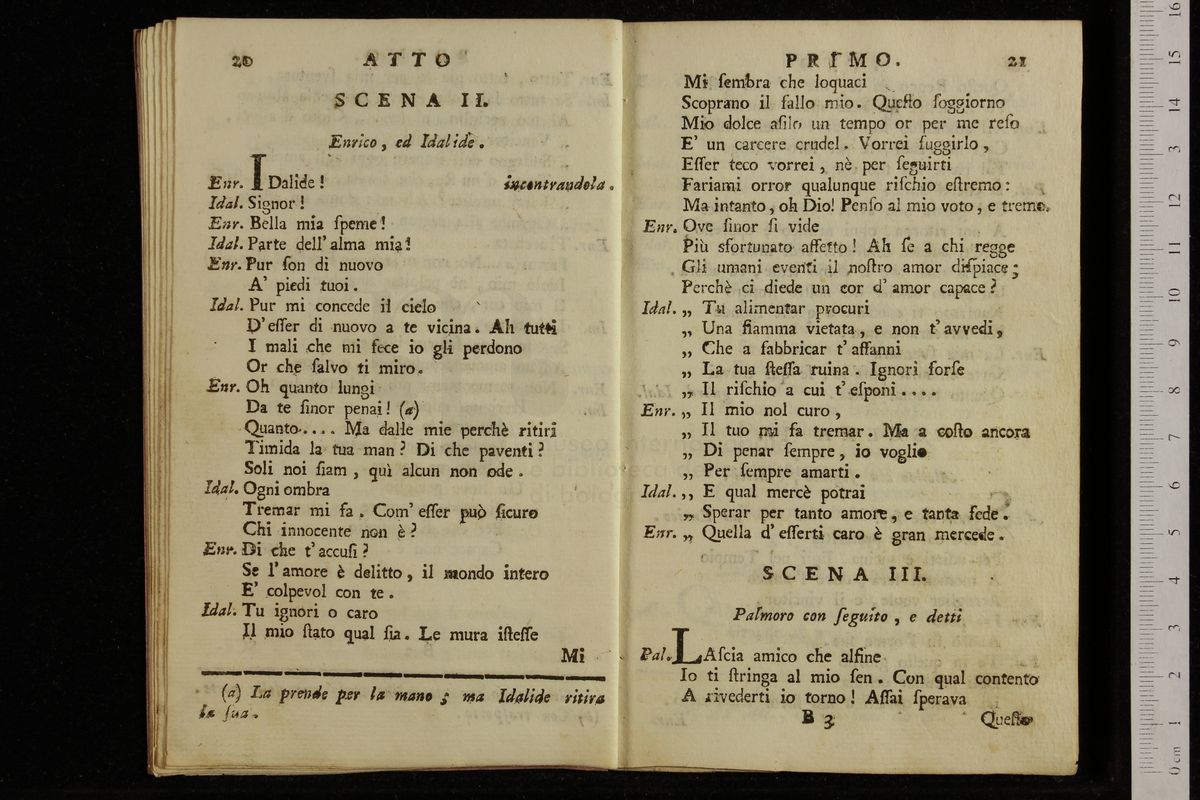 20 ATTO
SCENA II.
Enrico, ed Idalide.
Enr. IDalide! incontrandola.
Idal. Signor!
Enr. Bella mia ſpeme!
Idal. Parte dell' alma mia!
Enr. Pur ſon di nuovo
A' piedi tuoi.
Idal. Pur mi concede il cielo
D'eſſer di nuovo a te vicina. Ah tutti
I mali che mi fece io gli perdono
Or che ſalvo ti miro.
Enr. Oh quanto lungi
Da te ſinor penai! (a)
Quanto.... Ma dalle mie perchè ritiri
Timida la tua man? Di che paventi?
Soli noi ſiam, quì alcun non ode.
Idal. Ogni ombra
Tremar mi fa. Com' eſſer può ſicuro
Chi innocente non è?
Enr. Di che t'accuſi?
Se l'amore è delitto, il mondo intero
E' colpevol con te.
Idal. Tu ignori o caro
Il mio ſtato qual ſia. Le mura iſteſſe
Mi
(a) La prende per la mano; ma Idalide ritira
la ſua.
PRIMO. 21
Mi ſembra che loquaci
Scoprano il fallo mio. Queſto ſoggiorno
Mio dolce aſilo un tempo or per me reſo
E' un carcere crudel. Vorrei fuggirlo,
Eſſer teco vorrei, nè per ſeguirti
Fariami orror qualunque riſchio eſtremo:
Ma intanto, oh Dio! Penſo al mio voto, e tremo.
Enr. Ove ſinor ſi vide
Più sfortunato affetto! Ah ſe a chi regge
Gli umani eventi il noſtro amor diſpiace;
Perchè ci diede un cor d' amor capace?
Idal. „ Tu alimentar procuri
„ Una fiamma vietata, e non t' avvedi,
„ Che a fabbricar t' affanni
„ La tua ſteſſa ruina. Ignori forſe
„ Il riſchio a cui t' eſponi....
Enr. „ Il mio nol curo,
„ Il tuo mi fa tremar. Ma a coſto ancora
„ Di penar ſempre, io voglio
„ Per ſempre amarti.
Idal. ,, E qual mercè potrai
„ Sperar per tanto amore, e tanta fede.
Enr. „ Quella d' eſſerti caro è gran mercede.
SCENA III.
Palmoro con ſeguito, e detti
Pal. LAſcia amico che alfine
Io ti ſtringa al mio ſen. Con qual contento
A rivederti io torno! Aſſai ſperava
B 3 Queſto